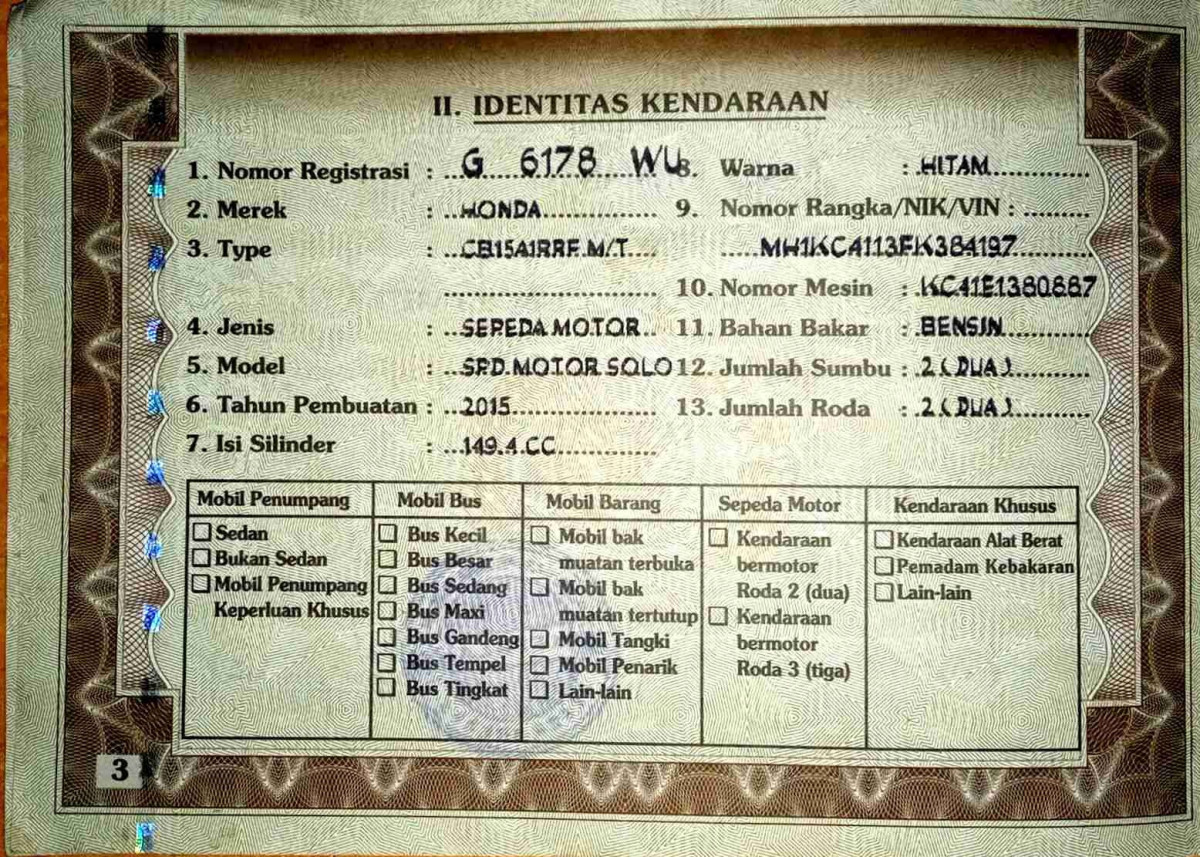 II. IDENTITAS KENDARAAN
1. Nomor Registrasi : G 6178 WU
2. Merek : HONDA
3. Type : CB15A1RRF M/T
4. Jenis : SEPEDA MOTOR
5. Model : SPD. MOTOR SOLO
6. Tahun Pembuatan : 2015
7. Isi Silinder : 149.4 CC
8. Warna : HITAM
9. Nomor Rangka/NIK/VIN :
MH1KC4113FK384197
10. Nomor Mesin : KC41E1380887
11. Bahan Bakar : BENSIN
12. Jumlah Sumbu : 2 ( DUA )
13. Jumlah Roda : 2 ( DUA )
Mobil Penumpang
☐ Sedan
☐ Bukan Sedan
☐ Mobil Penumpang
Keperluan Khusus
Mobil Bus
☐ Bus Kecil
☐ Bus Besar
☐ Bus Sedang
☐ Bus Maxi
☐ Bus Gandeng
☐ Bus Tempel
☐ Bus Tingkat
Mobil Barang
☐ Mobil bak
muatan terbuka
☐ Mobil bak
muatan tertutup
☐ Mobil Tangki
☐ Mobil Penarik
☐ Lain-lain
Sepeda Motor
☐ Kendaraan
bermotor
Roda 2 (dua)
☐ Kendaraan
bermotor
Roda 3 (tiga)
Kendaraan Khusus
☐ Kendaraan Alat Berat
☐ Pemadam Kebakaran
☐ Lain-lain
3